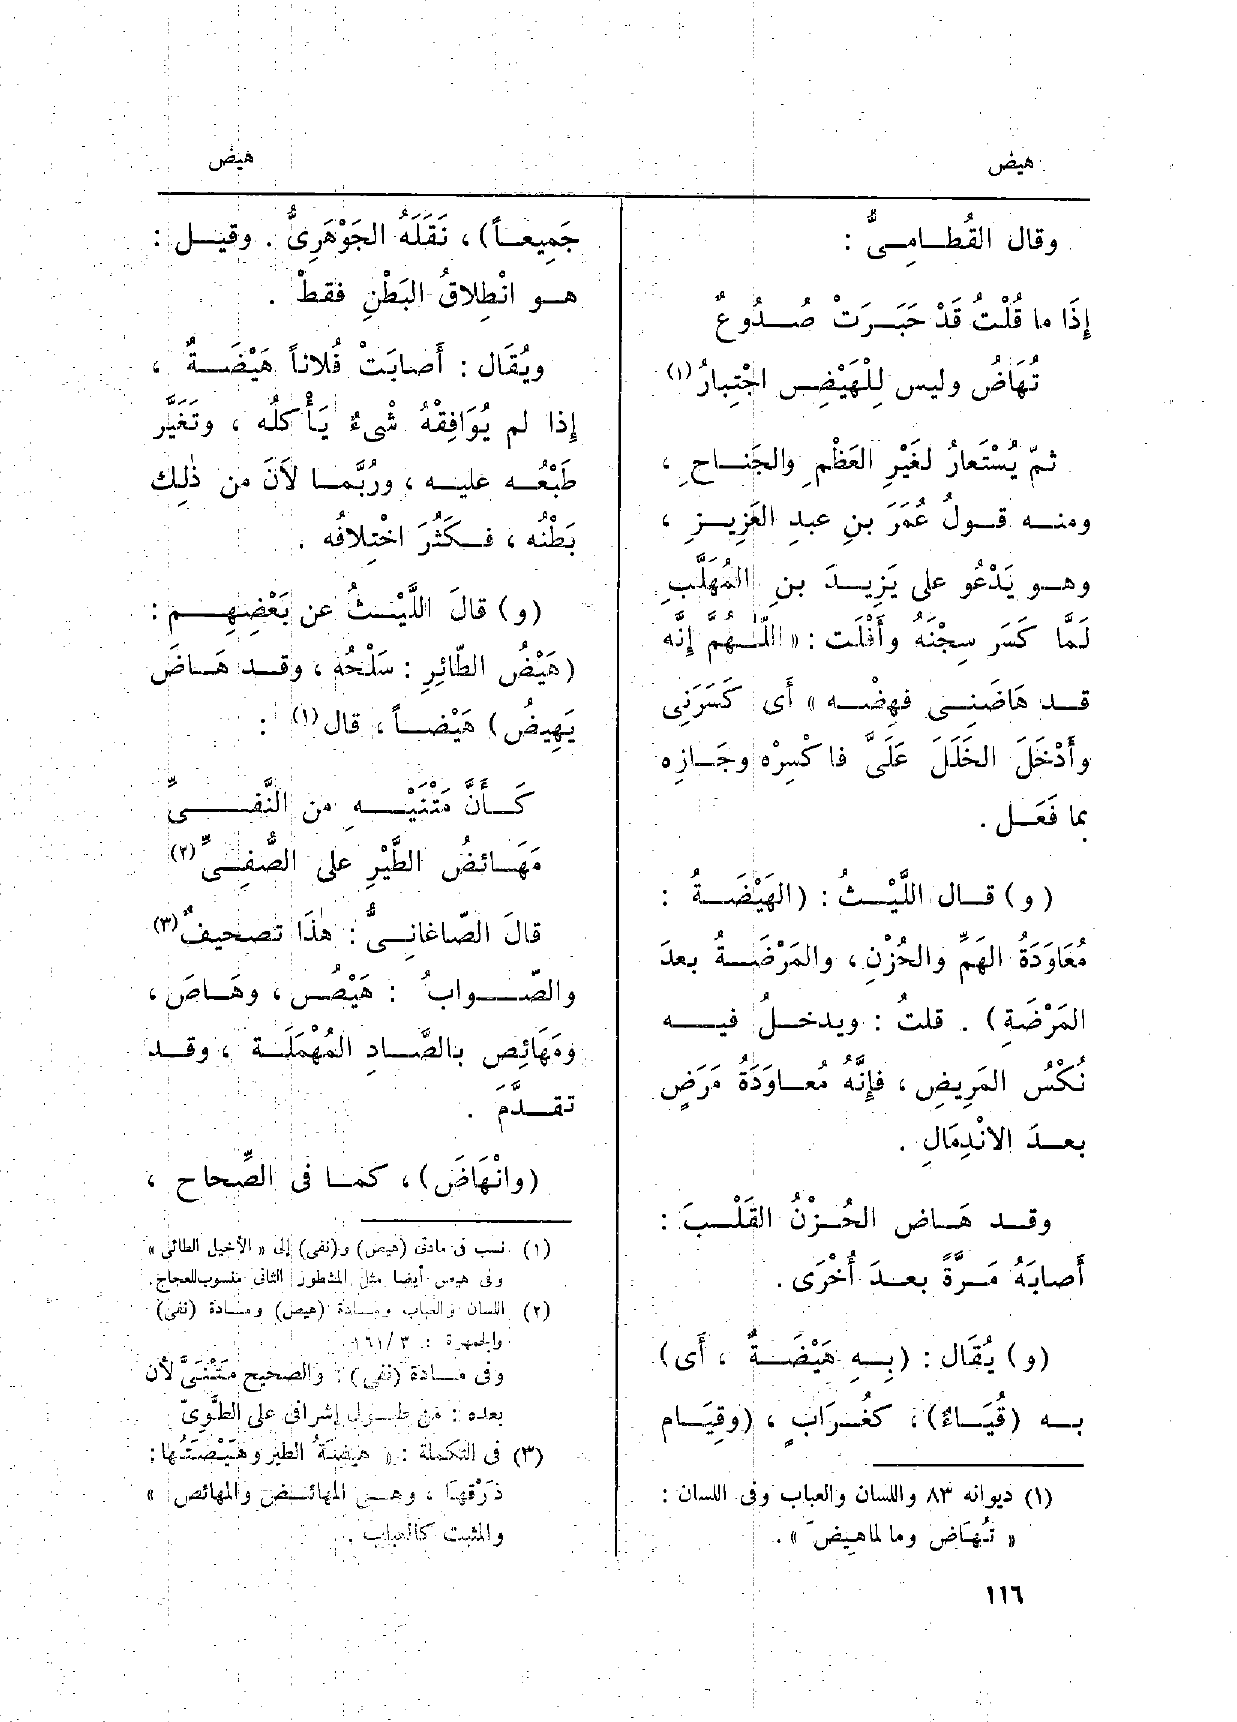 هيض
هيض
وقال القُطـامِـىُّ :
إِذَا ما قُلْتُ قَدْ جَبَـرَتْ صُـدُوعٌ
تُهَاضُ وليس لِلْهَيْضِ اجْتِبارُ (١)
ثمّ يُسْتَعارُ لغَيْرِ العَظْمِ والجَنـاحِ ،
ومنـه قـولُ عُمَرَ بنِ عبدِ العَزِيـزِ ،
وهـو يَدْعُو على يَزِيـدَ بنِ المُهَلَّبِ
لَمَّا كَسَر سِجْنَهُ وأَفْلَت : « اللّٰـهُمَّ إِنَّه
قـد هَاضَنِـى فهِضْـه » أَى كَسَرَنِى
وأَدْخَلَ الخَلَلَ عَلَىَّ فاكْسِرْه وجَـازِه
بما فَعَـل .
(و) قـال اللَّيْـثُ : (الهَيْضَـةُ :
مُعَاوَدَةُ الهَمِّ والحُزْنِ ، والمَرْضَـةُ بعدَ
المَرْضَةِ) . قلتُ : ويدخـلُ فيـه
نُكْسُ المَرِيضِ ، فإِنَّهُ مُعـاوَدَةُ مَرَضٍ
بعـدَ الانْدِمَالِ .
وقـد هَـاض الحُـزْنُ القَلْـبَ :
أَصابَهُ مَـرَّةً بعـدَ أُخْرَى .
(و) يُقَال : (بِـهِ هَيْضَـةٌ ، أَى)
بـه (قُيَـاءٌ) ، كغُـرَابٍ ، (وقِيَـام
(١) ديوانه ٨٣ واللسان والعباب وفى اللسان :
« تُهَاض وما لماهِيضَ » .
جَمِيعـاً) ، نَقَلَهُ الجَوْهَرِىُّ . وقيـل :
هـو انْطِلاقُ البَطْنِ فقطْ .
ويُقَال : أَصابَتْ فُلاناً هَيْضَـةٌ ،
إِذا لم يُوَافِقْهُ شىءٌ يَأْكلُه ، وتَغَيَّر
طَبْعُـه عليـه ، ورُبَّمـا لَانَ من ذٰلِك
بَطْنُه ، فـكَثُرَ اخْتِلافُه .
(و) قالَ اللَّيْـثُ عن بَعْضِهِـم :
(هَيْضُ الطّائِرِ : سَلْحُه ، وقـد هَـاضَ
يَهِيضُ) هَيْضـاً ، قال (١) :
كَـأَنَّ مَتْنَيْـهِ من النَّفِـىِّ
مَهَـائضُ الطَّيْرِ على الصُّفِـىِّ (٢)
قالَ الصّاغانِـىُّ : هٰذَا تصحيفٌ (٣)
والصّـوابُ : هَيْصُ ، وهَـاصَ ،
ومَهَائِص بالصَّـادِ المُهْمَلَـةِ ، وقـد
تقـدَّمَ .
(وانْهَاضَ) ، كمـا فى الصِّحاح ،
(١) نسب فى مادتى (هيص) و(نفى) إلى « الأخيل الطائى »
وفى هيص أيضا مثل المشطور الثانى منسوب للعجاج.
(٢) اللسان والعباب ومـادة (هيص) ومـادة (نفى)
والجمهرة : ٣ /١٦١
وفى مـادة (نفى) : والصحيح مَتْنَىَّ لأن
بعده : من طـول إشرافى على الطَّوِىّ
(٣) فى التكملة : « هَيضَةُ الطير وهَيْصَتُها :
ذَرْقُهَا ، وهـى المهائـض والمهائص »
والمثبت كالعباب .
١١٦